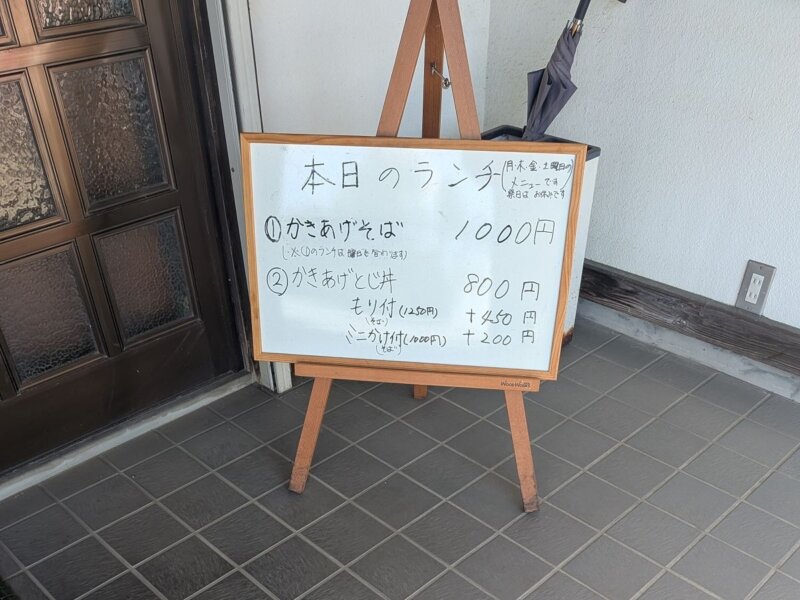 本日のランチ
(月・木・金・土曜日の
メニューです
祭日は お休みです)
① かきあげそば 1000円
(※①のランチは曜日を問わず)
② かきあげとじ丼 800円
もり付(1250円) +450円
(そば)
ミニかけ付(1000円) +200円
(そば)